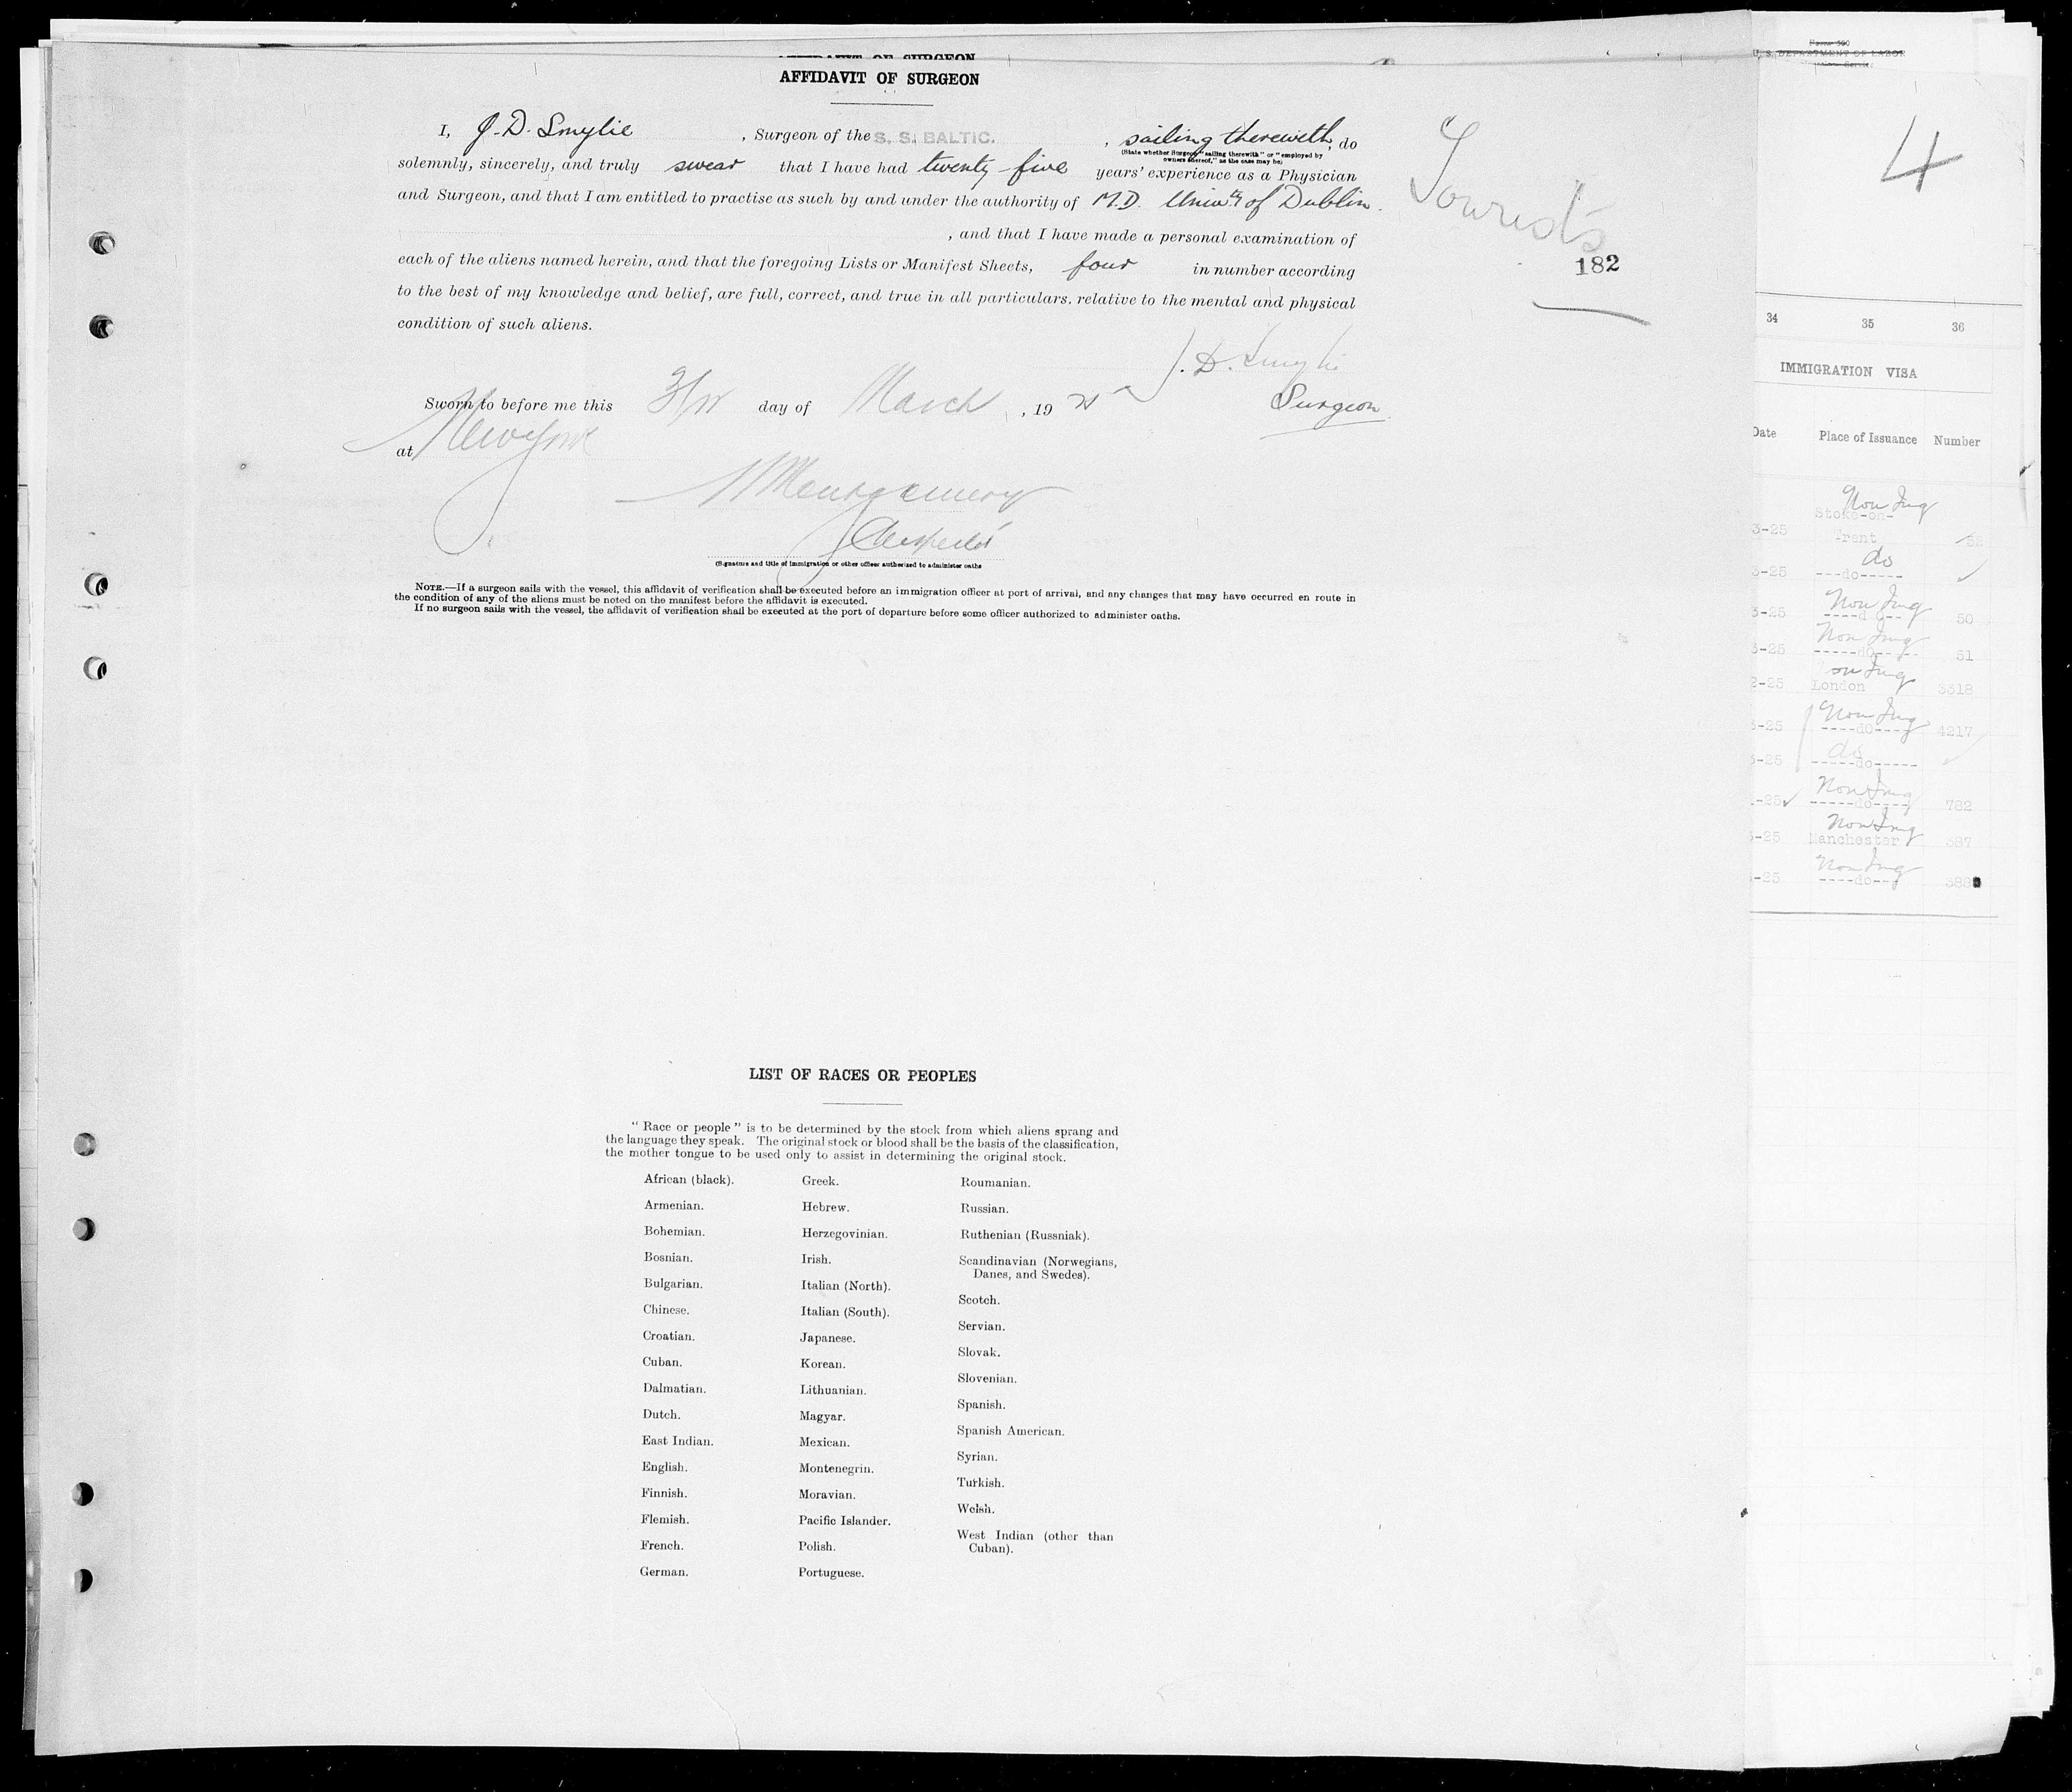 AFFIDAVIT OF SURGEON
AFFIDAVIT OF SURGEON
I, J. D. Smylie, Surgeon of the S. S. BALTIC. , sailing therewith, do
(State whether Surgeon "sailing therewith" or "employed by
owners thereof," as the case may be)
solemnly, sincerely, and truly swear that I have had twenty five years' experience as a Physician
and Surgeon, and that I am entitled to practise as such by and under the authority of M.D. Univty of Dublin.
, and that I have made a personal examination of
each of the aliens named herein, and that the foregoing Lists or Manifest Sheets, four in number according
to the best of my knowledge and belief, are full, correct, and true in all particulars. relative to the mental and physical
condition of such aliens.
J. D. Smylie
Surgeon
Sworn to before me this day of March, 19
at New York
Montgomery
(Signature and title of immigration or other officer authorized to administer oaths
NOTE.—If a surgeon sails with the vessel, this affidavit of verification shall be executed before an immigration officer at port of arrival, and any changes that may have occurred en route in
the condition of any of the aliens must be noted on the manifest before the affidavit is executed.
If no surgeon sails with the vessel, the affidavit of verification shall be executed at the port of departure before some officer authorized to administer oaths.
182
LIST OF RACES OR PEOPLES
" Race or people " is to be determined by the stock from which aliens sprang and
the language they speak. The original stock or blood shall be the basis of the classification,
the mother tongue to be used only to assist in determining the original stock.
African (black).
Armenian.
Bohemian.
Bosnian.
Bulgarian.
Chinese.
Croatian.
Cuban.
Dalmatian.
Dutch.
East Indian.
English.
Finnish.
Flemish.
French.
German.
Greek.
Hebrew.
Herzegovinian.
Irish.
Italian (North).
Italian (South).
Japanese.
Korean.
Lithuanian.
Magyar.
Mexican.
Montenegrin.
Moravian.
Pacific Islander.
Polish.
Portuguese.
Roumanian.
Russian.
Ruthenian (Russniak).
Scandinavian (Norwegians,
Danes, and Swedes).
Scotch.
Servian.
Slovak.
Slovenian.
Spanish.
Spanish American.
Syrian.
Turkish.
Welsh.
West Indian (other than
Cuban).
U. S. DEPARTMENT OF LABOR
4
34 35 36
IMMIGRATION VISA
Date Place of Issuance Number
Non Img
Stoke-on-
3-25 Trent
do
3-25 ---do-----
Non Img
3-25 50
Non Img
3-25 -----do----- 51
2-25 London 3318
Non Img
3-25 ----do---- 4217
do
3-25 -----do-----
Non Img
-25 -----do---- 782
Non Img
3-25 Manchester 387
Non Img
-25 ----do--- 388